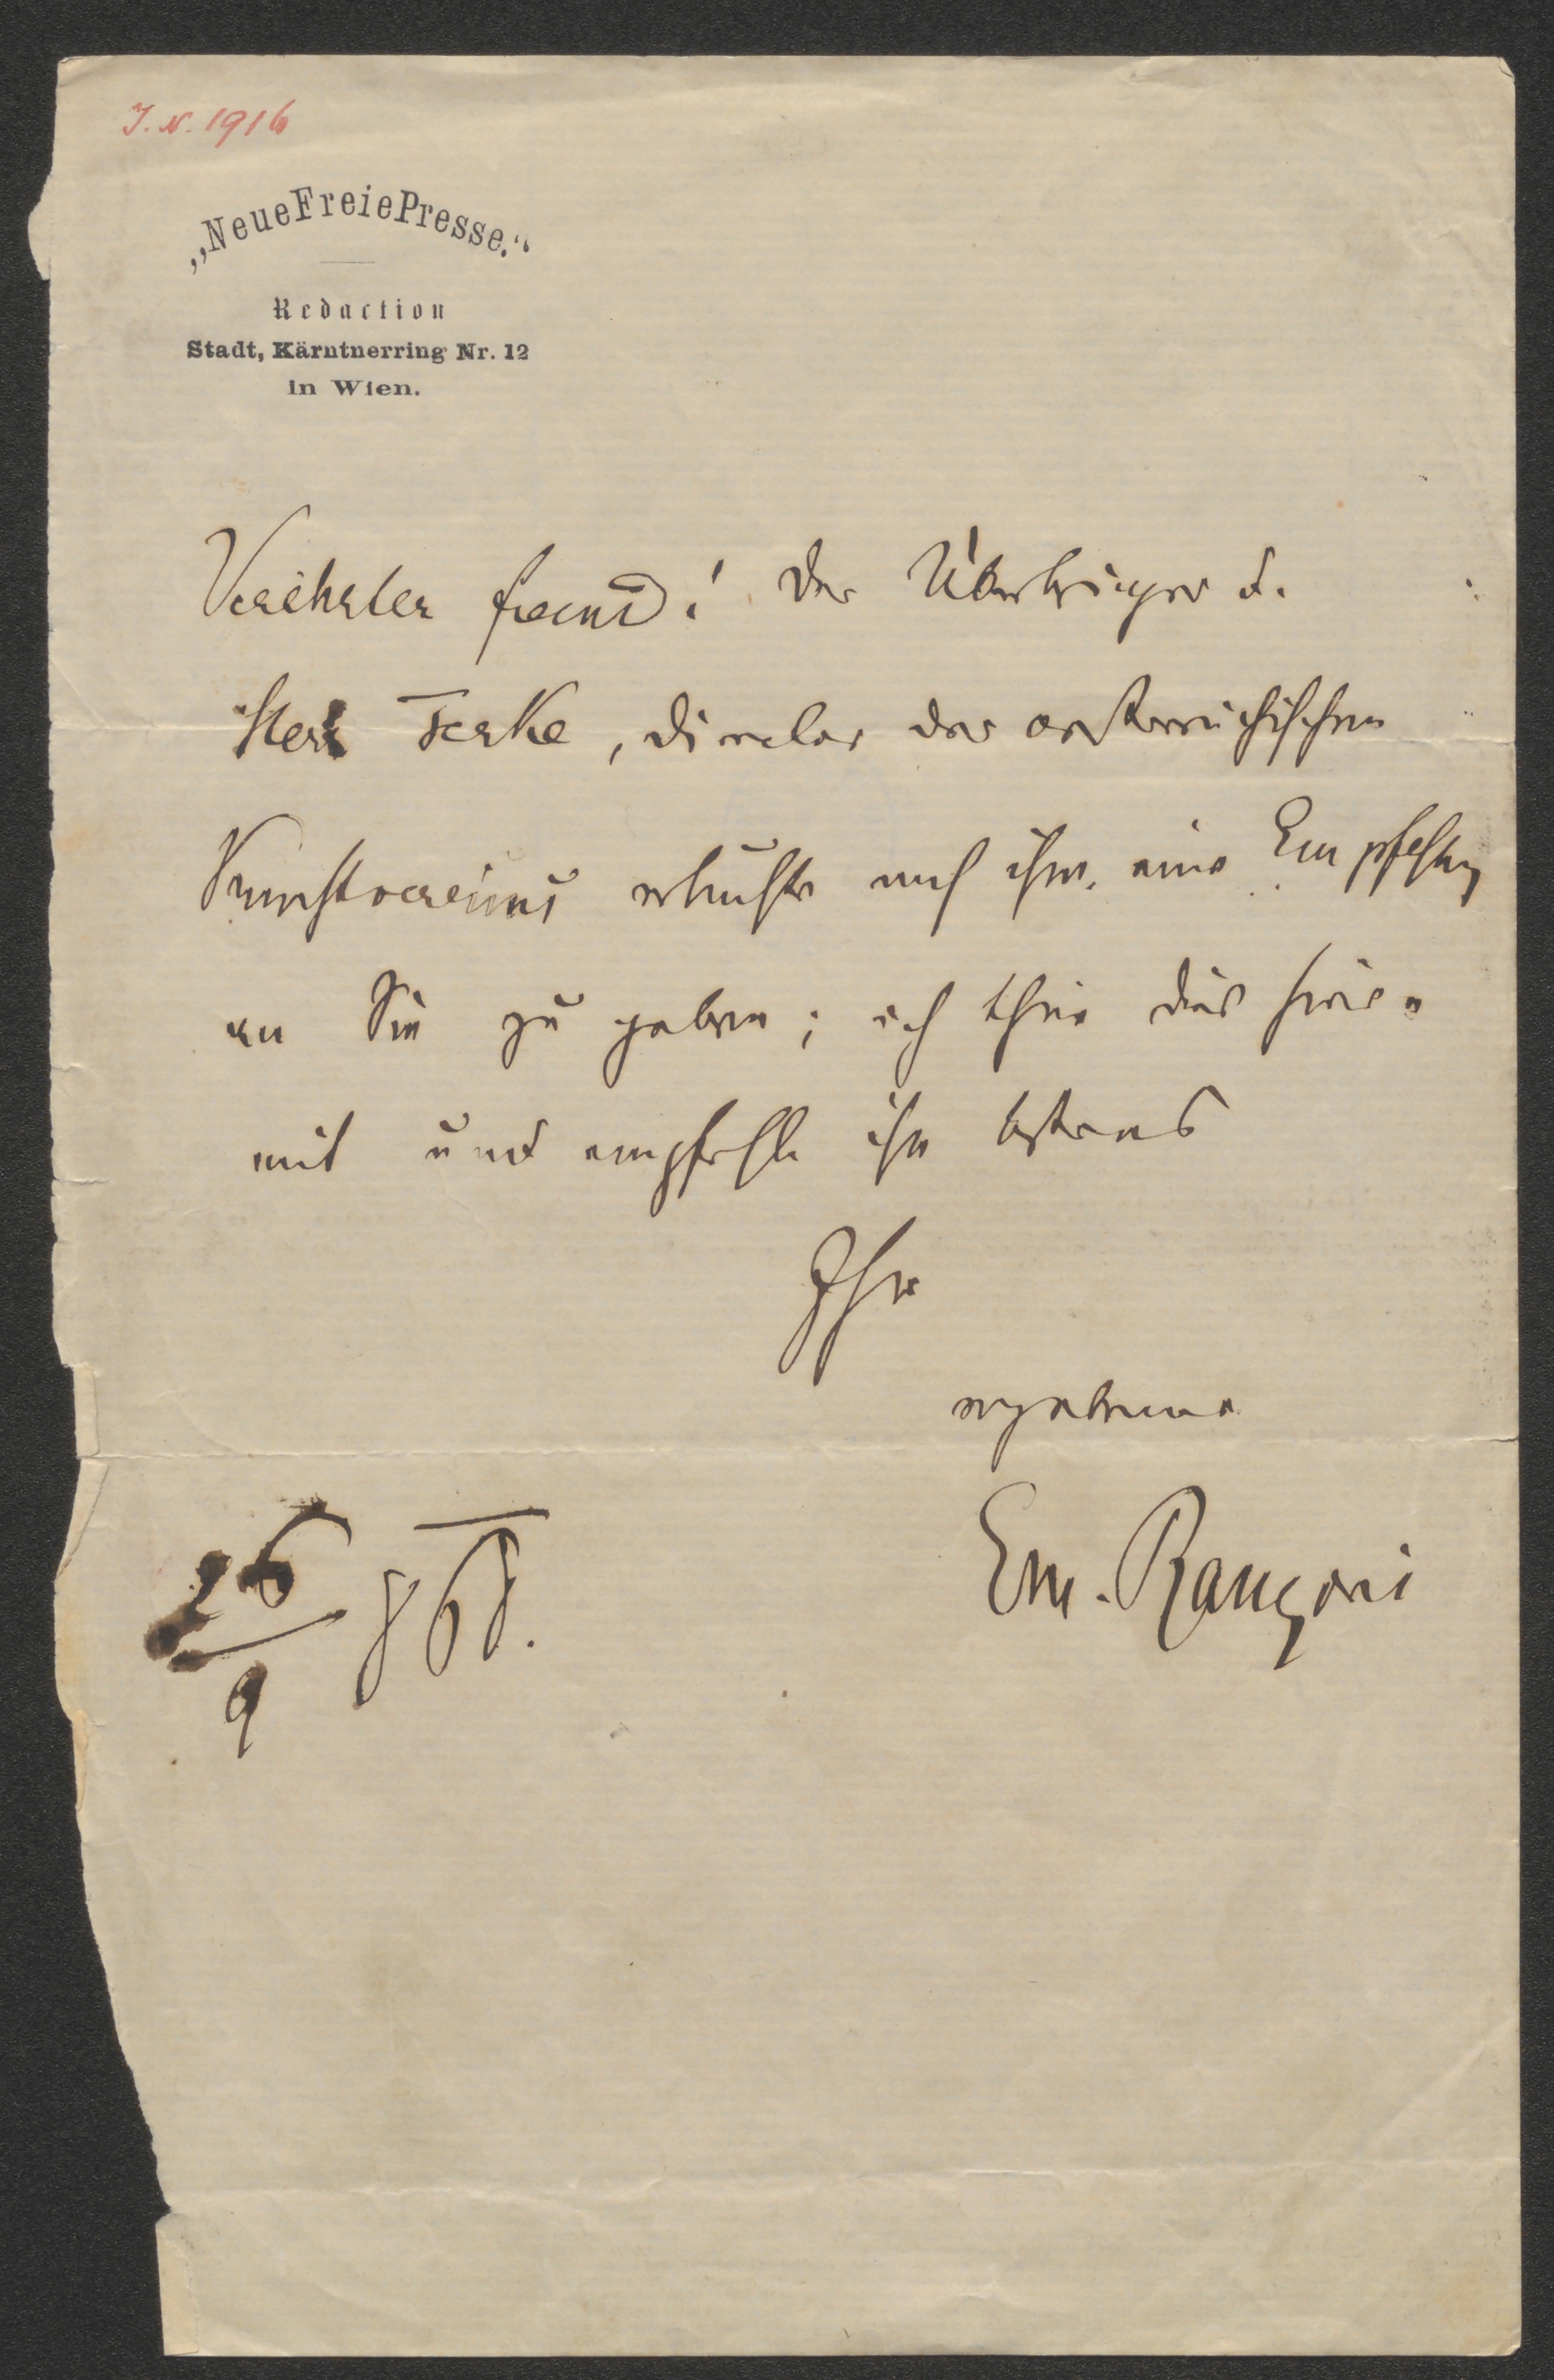 J. N. 1916
„Neue Freie Presse."
Redaction
Stadt, Kärntnerring Nr. 12
in Wien.
Verehrter Freund! Der Überbringer d.
Herr Terke, Director des oesterreichischen
Kunstvereins ersuchte mich ihm eine Empfehlung
an Sie zu geben; ich thue dies hie-
mit und empfehle ihn bestens
Ihr
ergebener
Em. Ranzoni
26/9 868.